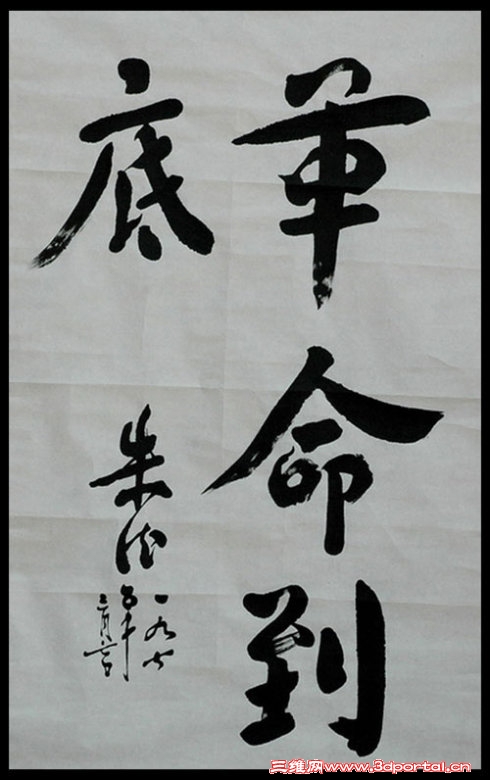 革命到
底
朱德
一九七
五年
三月六日
三维网www.3dportal.cn